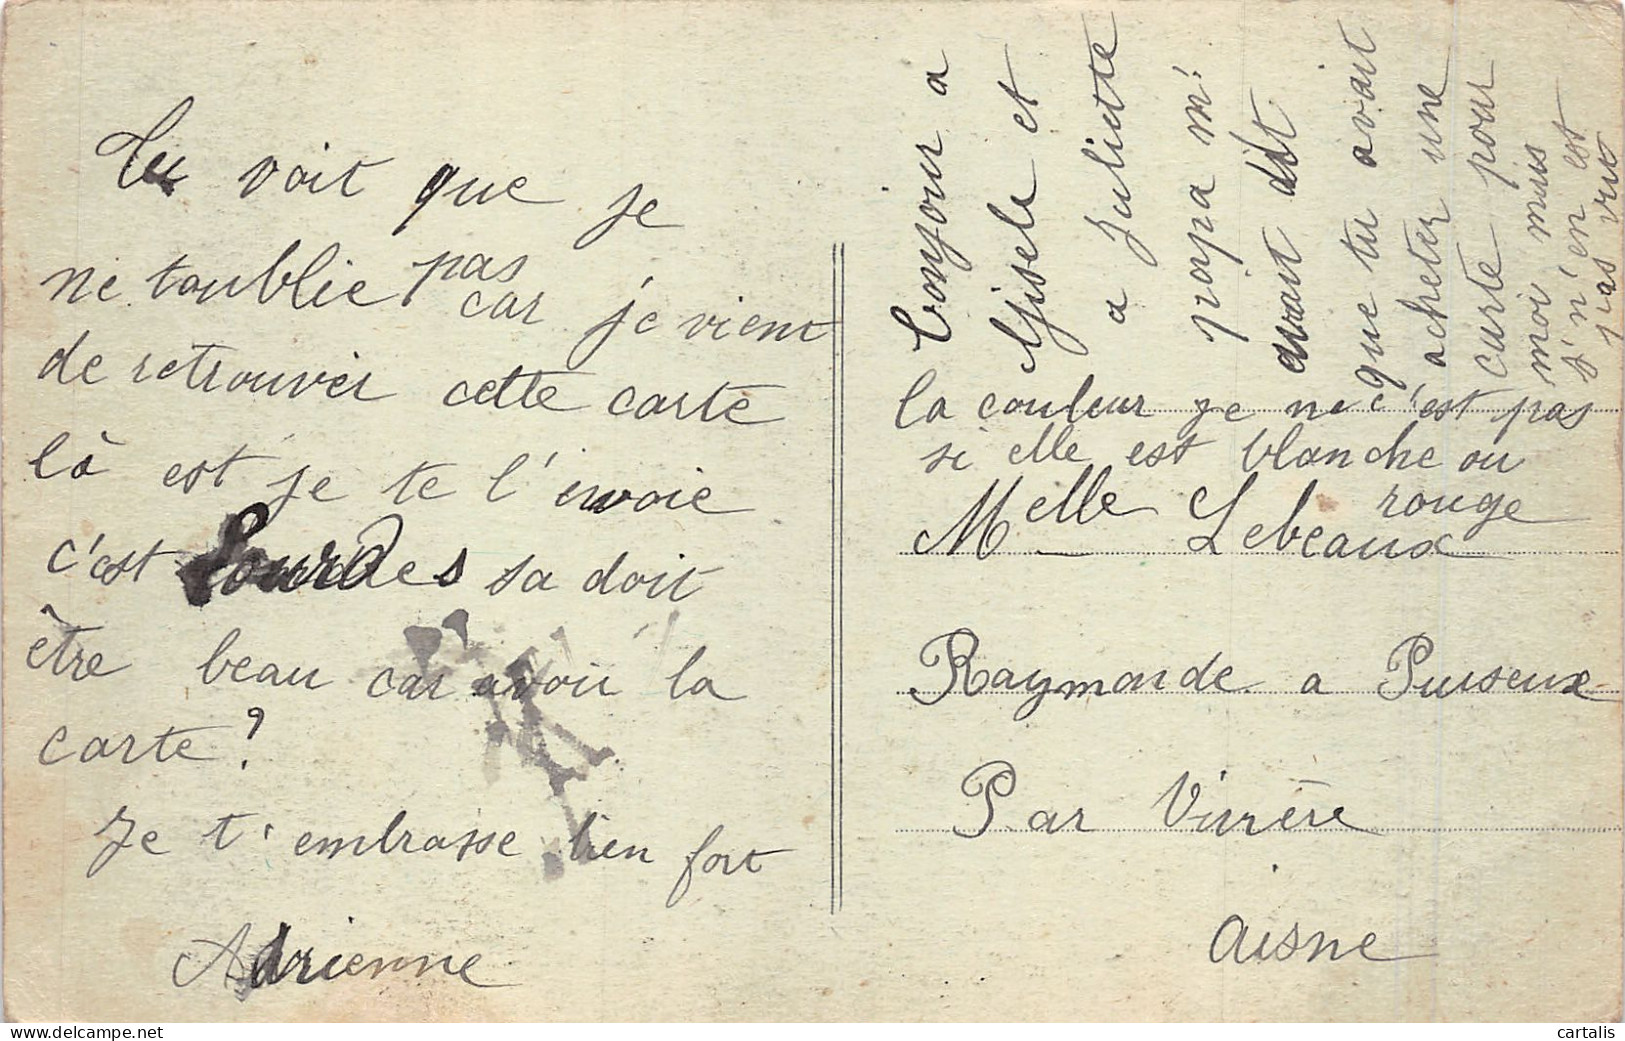 Tu voit que je
ne toublie pas
car je vient
de retrouver cette carte
là est je te l'envoie
c'est Lourdes sa doit
être beau car avoir la
carte ?
Je t'embrasse bien fort
Adrienne
bonjour a
Gisele et
a Juliette
papa m'
avait dit
que tu avait
acheter une
carte pour
moi mais
s'n'en est
pas vut
la couleur je ne c'est pas
si elle est blanche ou
rouge
Melle Lebeaux
Raymonde a Puiseux
Par Vivière
Aisne
cartalis
www.delcampe.net